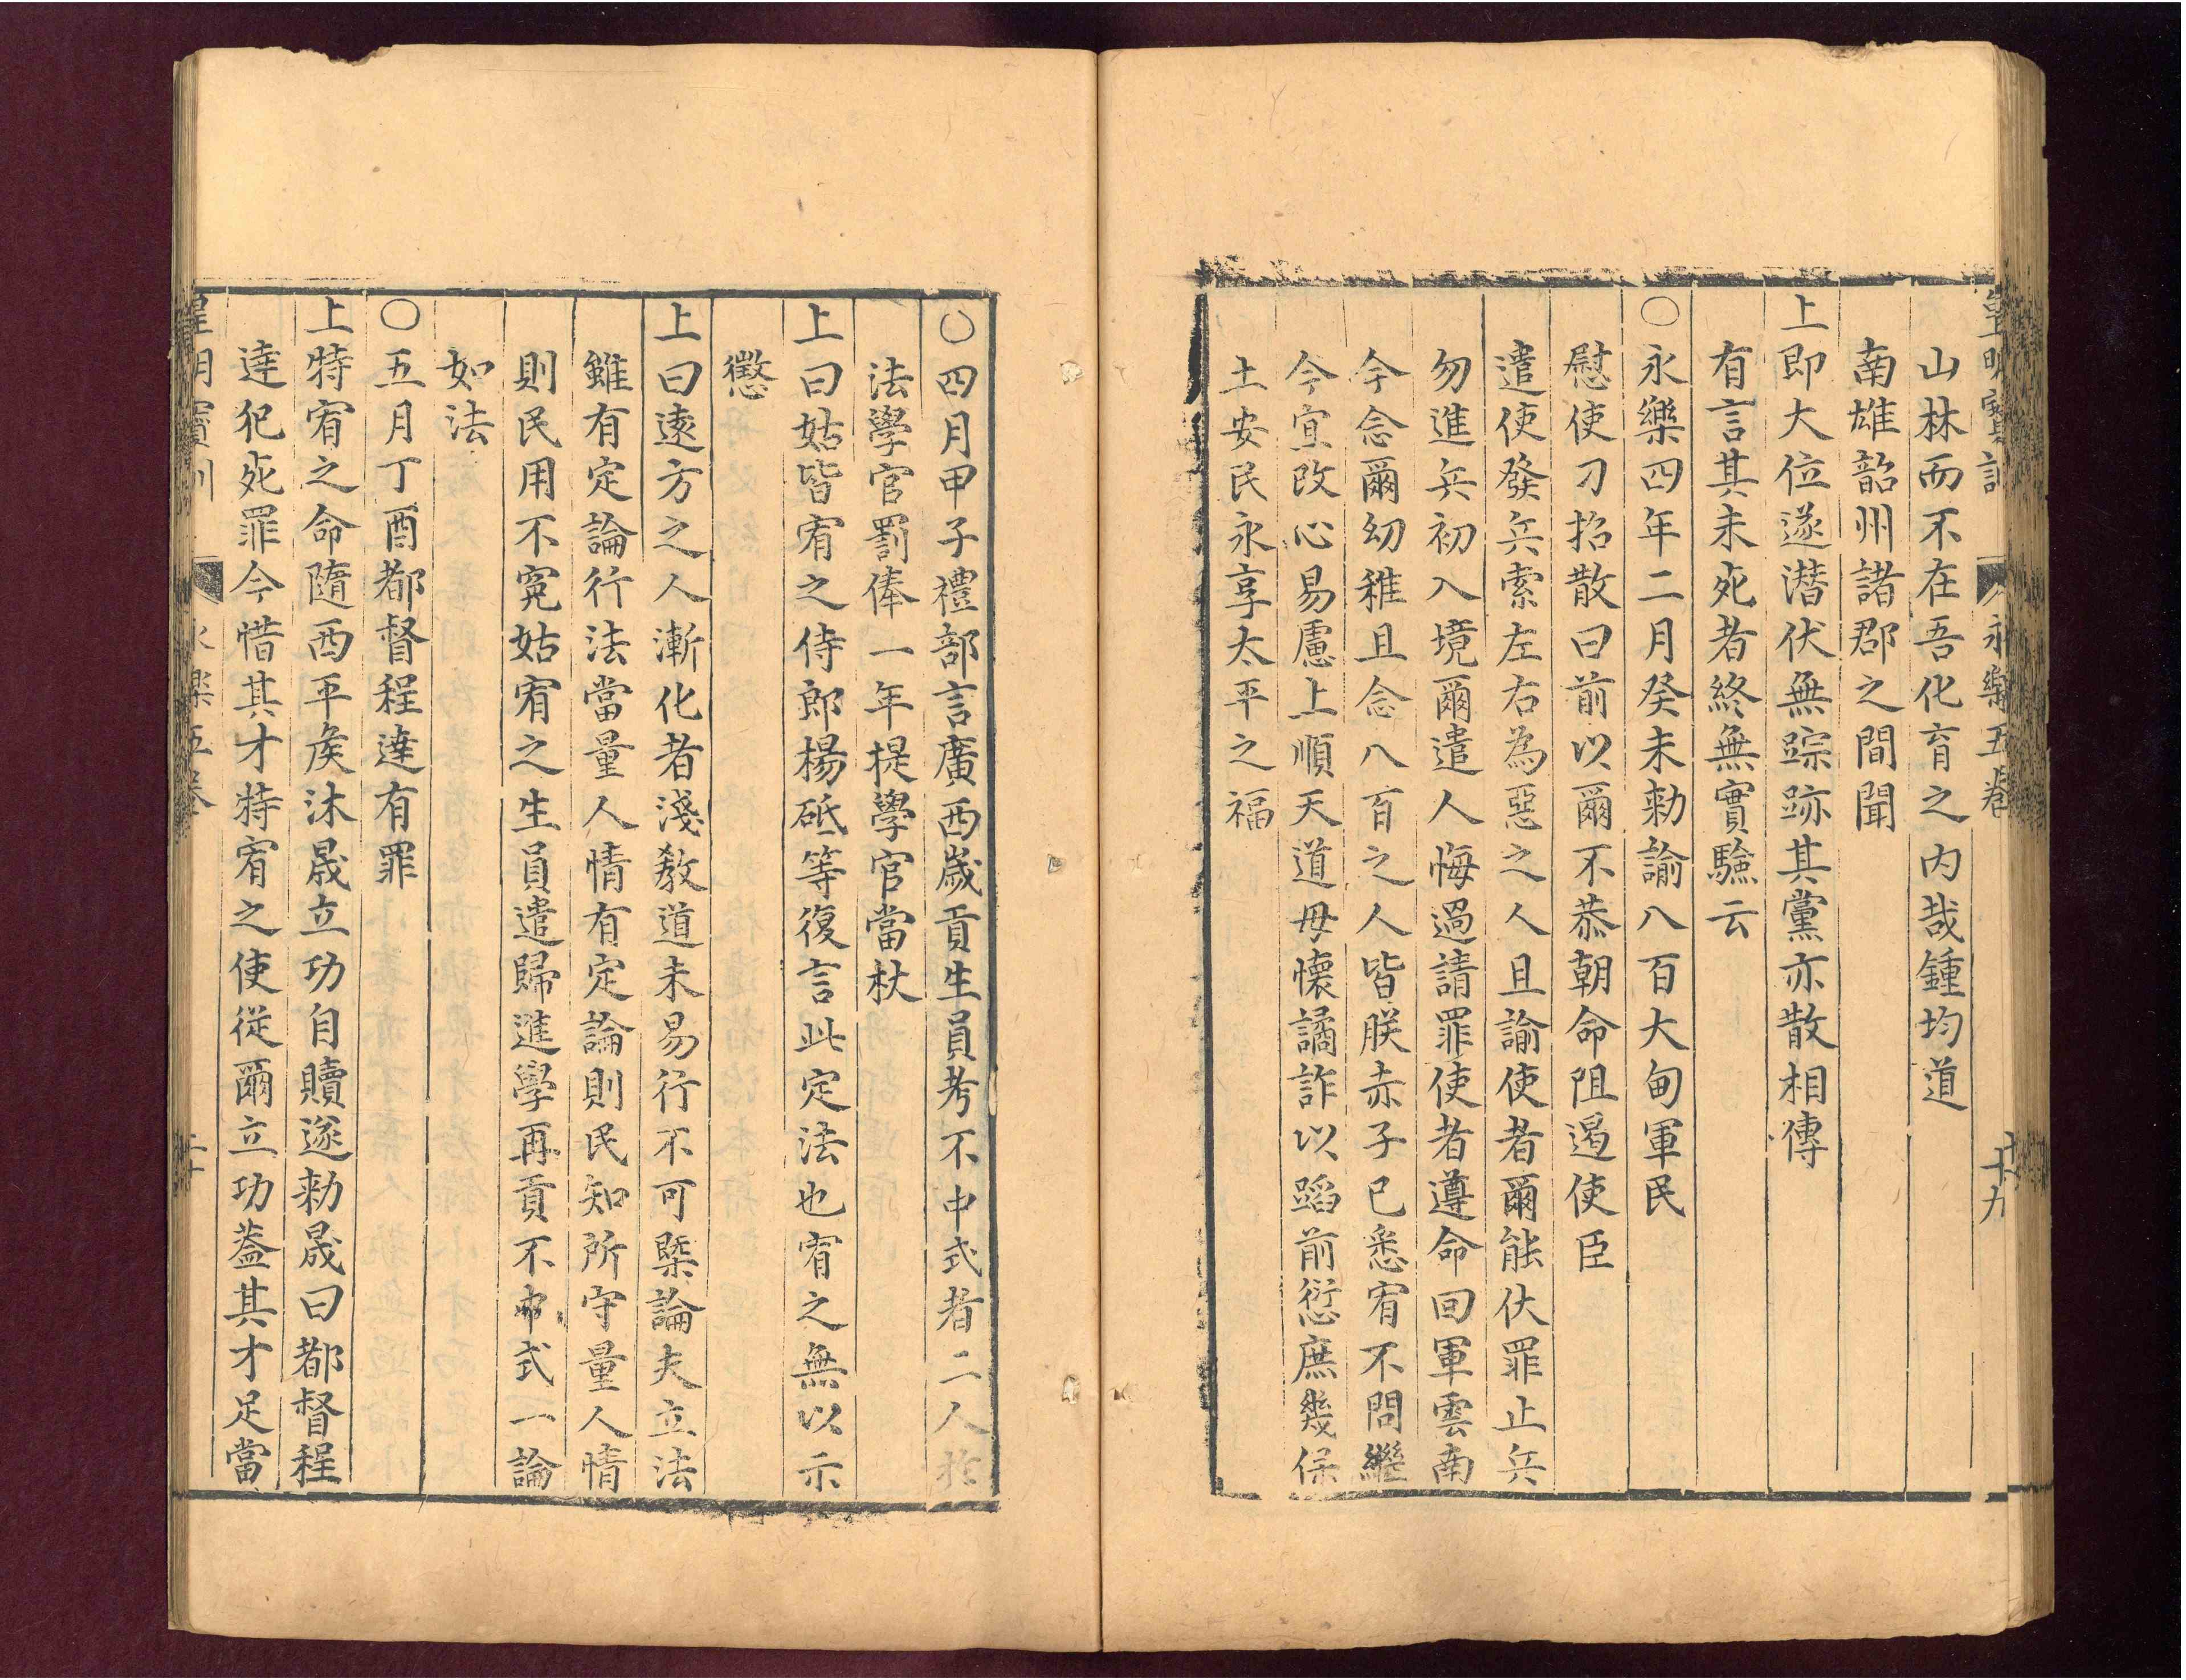 皇明寳訓 永樂五卷 十九
山林而不在吾化育之内哉鍾均道
南雄韶州諸郡之間聞
上即大位遂潜伏無踪跡其黨亦散相傳
有言其未死者終無實驗云
○永樂四年二月癸未勑諭八百大甸軍民
慰使刀招散曰前以爾不恭朝命阻遏使臣
遣使發兵索左右為惡之人且諭使者爾能伏罪止兵
勿進兵初入境爾遣人悔過請罪使者遵命回軍雲南
今念爾幼稚且念八百之人皆朕赤子已悉宥不問繼
今宜改心易慮上順天道毋懷譎詐以蹈前愆庶幾保
土安民永享太平之福
○四月甲子禮部言廣西歲貢生員考不中式者二人於
法學官罰俸一年提學官當杖
上曰姑皆宥之侍郎楊砥等復言此定法也宥之無以示
懲
上曰逺方之人漸化者淺教道未易行不可槩論夫立法
雖有定論行法當量人情有定論則民知所守量人情
則民用不寃姑宥之生員遣歸進學再貢不中式一論
如法
○五月丁酉都督程逹有罪
上特宥之命隨西平矦沐晟立功自贖遂勑晟曰都督程
逹犯死罪今惜其才特宥之使從爾立功葢其才足當
皇明寳訓 永樂五卷 二十